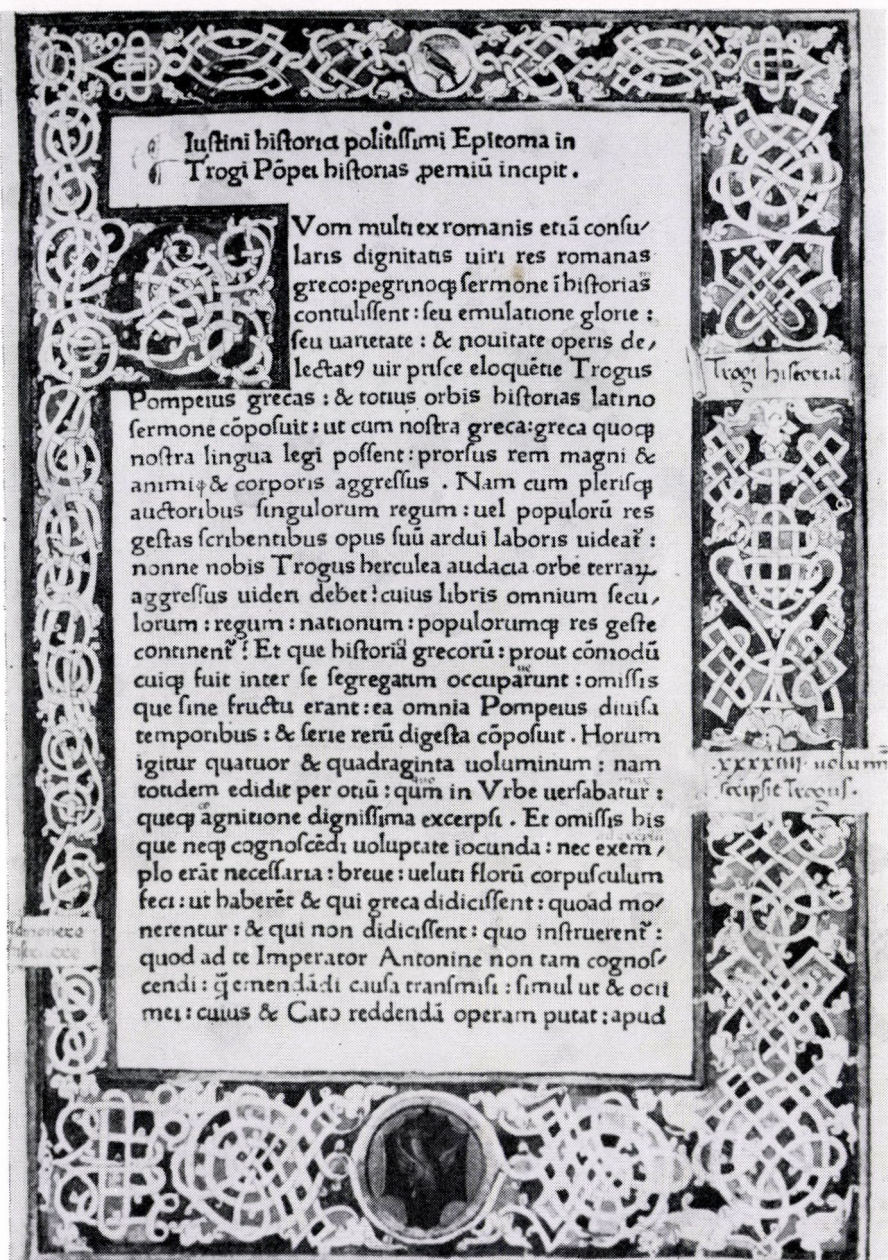 Iuſtini hiſtorici politiſſimi Epitoma in
Trogi Põpei hiſtorias ꝓemiũ incipit.
Vom multi ex romanis etiã conſu⸗
laris dignitatis uiri res romanas
greco: pegrinoqꝫ ſermone ĩ hiſtorias
contuliſſent: ſeu emulatione glorie:
ſeu uarietate: & nouitate operis de⸗
lectatꝰ uir priſce eloquẽtie Trogus
Pompeius grecas: & totius orbis hiſtorias latino
ſermone cõpoſuit: ut cum noſtra greca: greca quoqꝫ
noſtra lingua legi poſſent: prorſus rem magni &
animi & corporis aggreſſus. Nam cum pleriſqꝫ
auctoribus ſingulorum regum: uel populorũ res
geſtas ſcribentibus opus ſuũ ardui laboris uideat᷑:
nonne nobis Trogus herculea audacia orbẽ terraꝝ
aggreſſus uideri debet? cuius libris omnium ſecu⸗
lorum: regum: nationum: populorumqꝫ res geſte
continent᷑? Et que hiſtorici grecorũ: prout cõmodũ
cuiqꝫ fuit inter ſe ſegregatim occuparunt: omiſſis
que ſine fructu erant: ea omnia Pompeius diuiſa
temporibus: & ſerie rerũ digeſta cõpoſuit. Horum
igitur quatuor & quadraginta uoluminum: nam
totidem edidit per otiũ: qũm in Vrbe uerſabatur:
queqꝫ agnitione digniſſima excerpſi. Et omiſſis his
que neqꝫ cognoſcẽdi uoluptate iocunda: nec exem⸗
plo erãt neceſſaria: breue: ueluti florũ corpuſculum
feci: ut haberẽt & qui greca didiciſſent: quoad mo⸗
nerentur: & qui non didiciſſent: quo inſtruerent᷑:
quod ad te Imperator Antonine non tam cognoſ⸗
cendi: q̃ emendãdi cauſa tranſmiſi: ſimul ut & ocii
mei: cuius & Cato reddendã operam putat: apud
Trogi hiſtoria
xxxxiiii uolumĩ
ſcripſit Trogus.